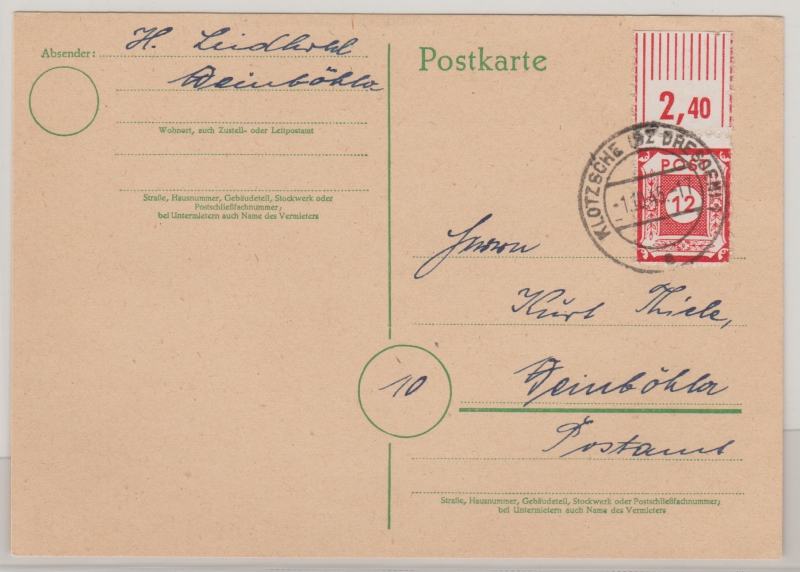 Absender: H. Leidhold
Weinböhla
Wohnort, auch Zustell- oder Leitpostamt
Straße, Hausnummer, Gebäudeteil, Stockwerk oder
Postschließfachnummer;
bei Untermietern auch Name des Vermieters
Postkarte
2,40
POST
12
KLOTZSCHE (BZ DRESDEN)
Herrn
Kurt Thiele,
10
Weinböhla
Postamt
Straße, Hausnummer, Gebäudeteil, Stockwerk oder Postschließfachnummer;
bei Untermietern auch Name des Vermieters